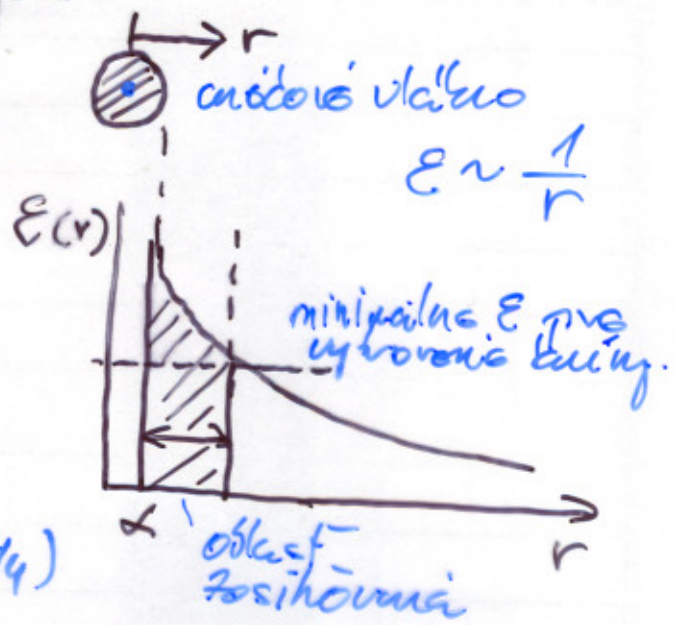 r
anódové vlákno
ε ~ 1/r
ε(r)
minimálna ε pre
vytvorenie
α
oblasť
zosilňovania
r